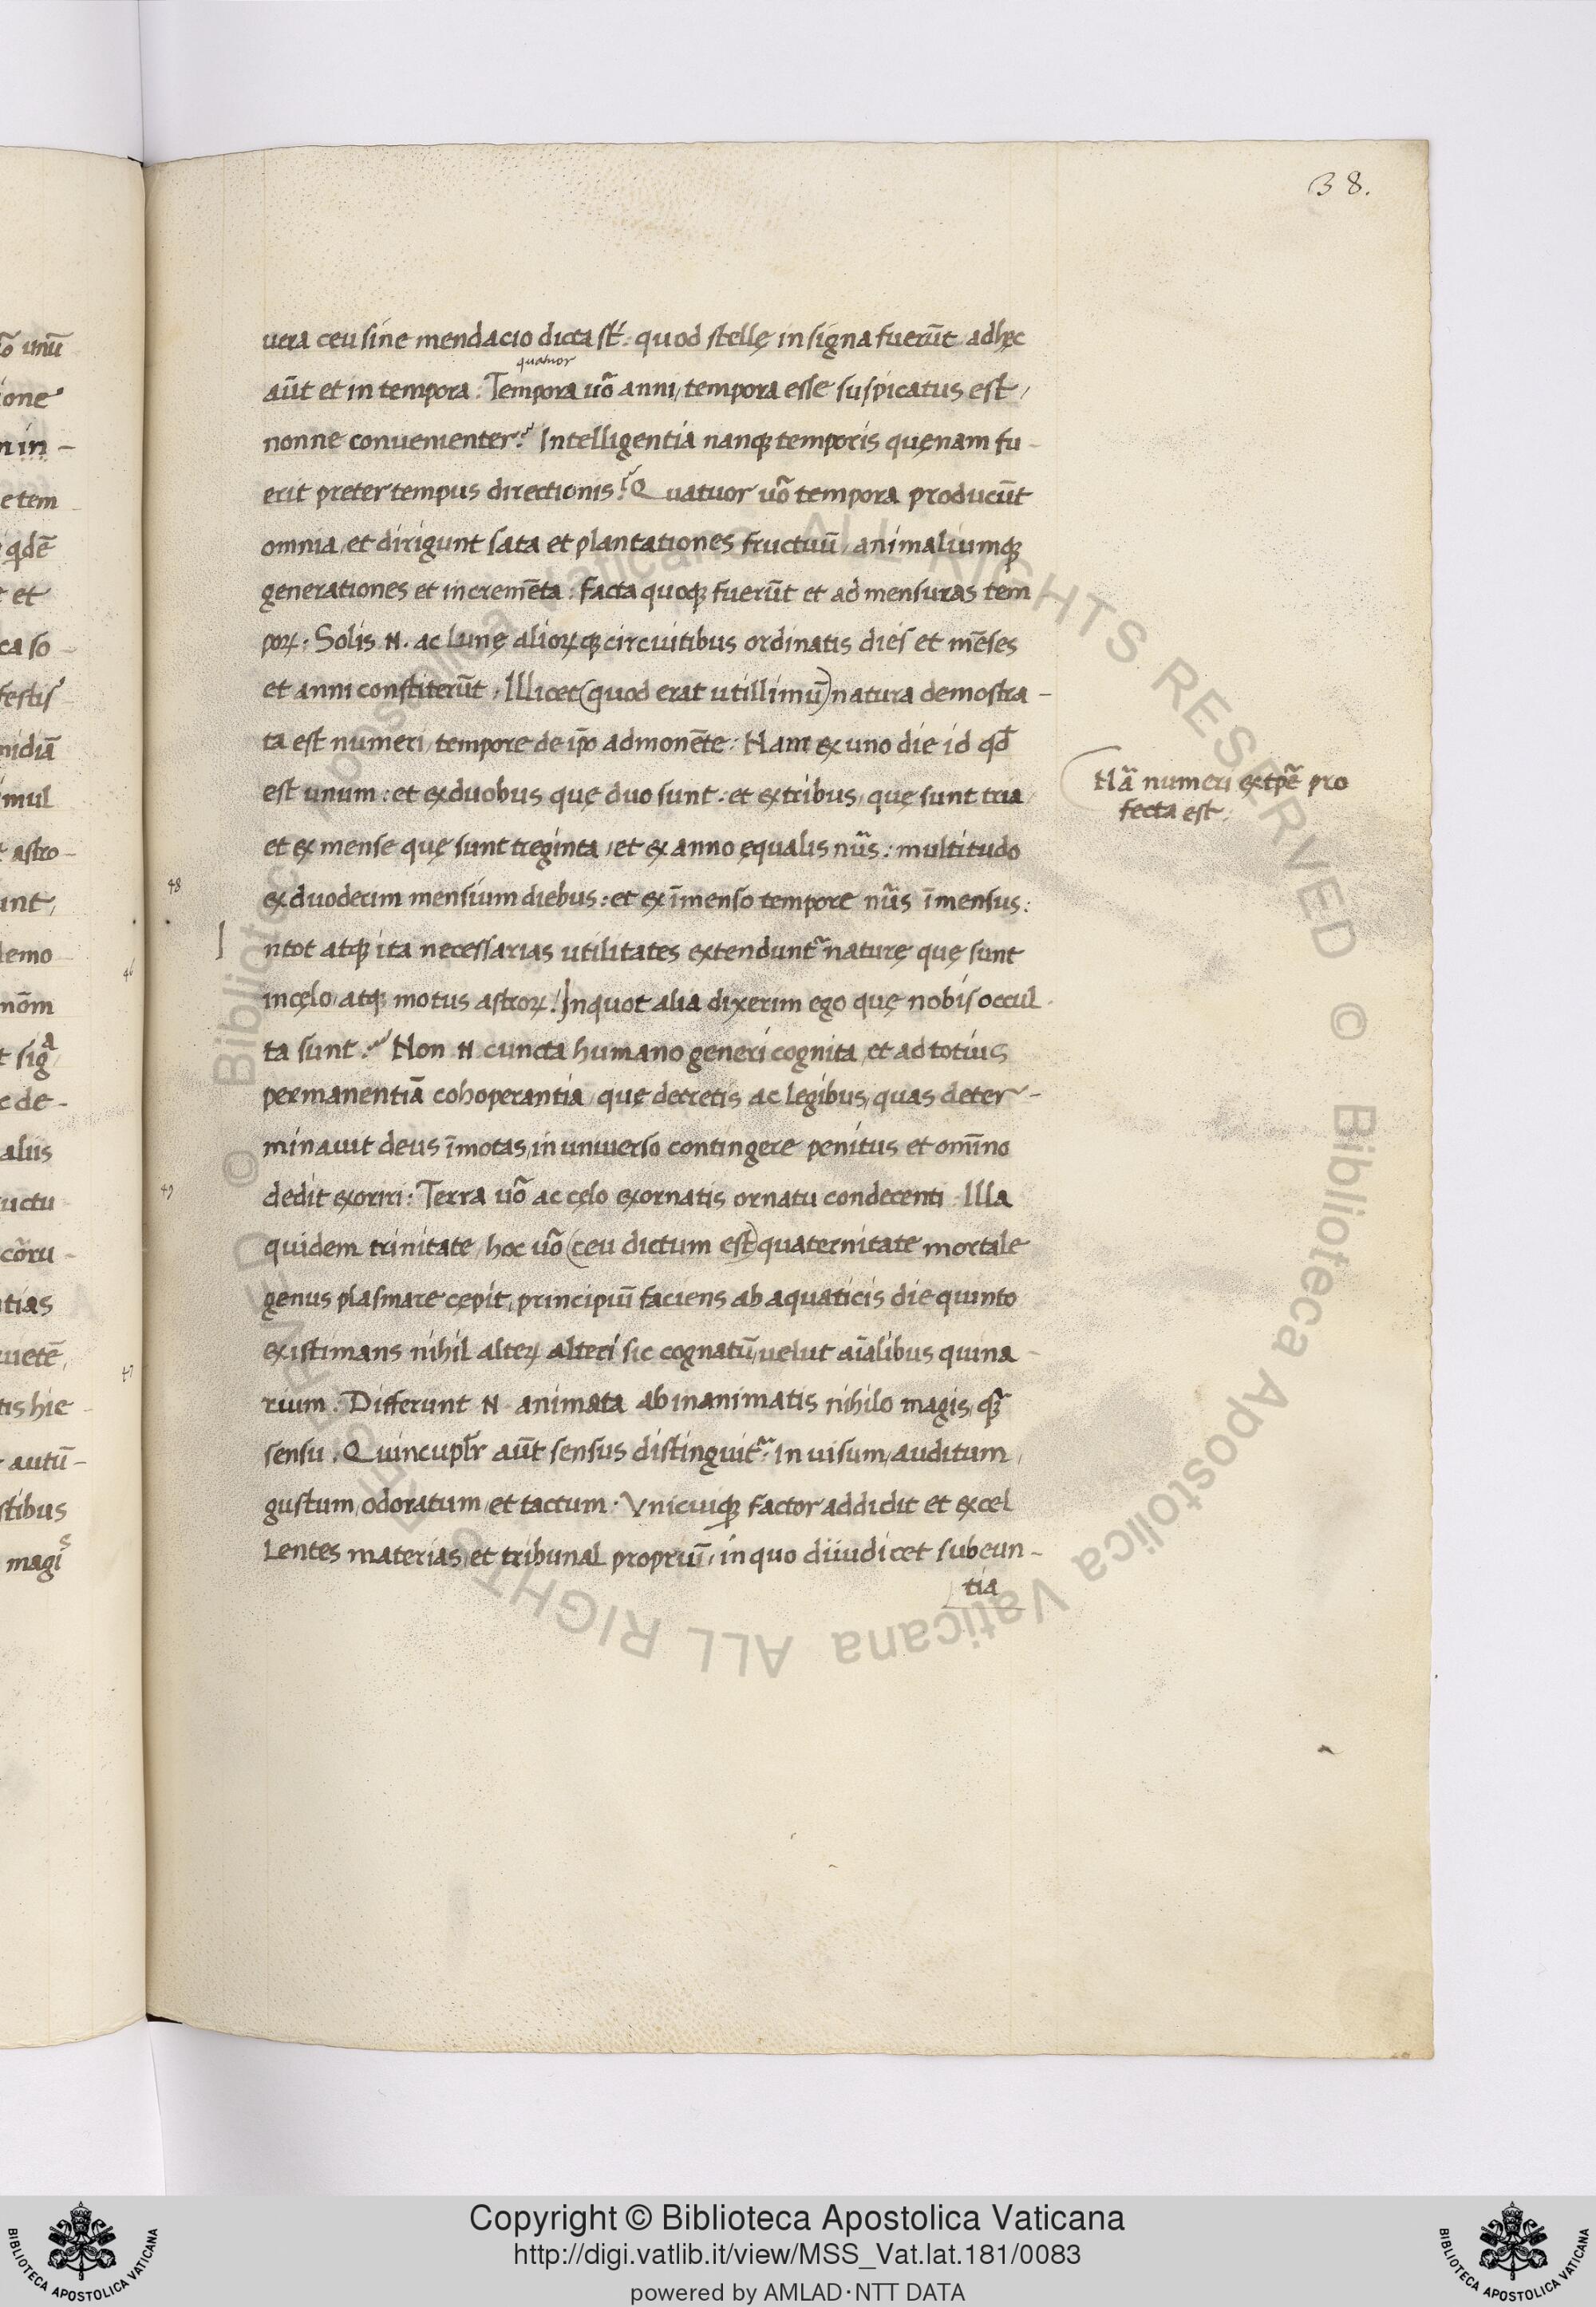 38.
uera ceu sine mendacio dicta st̄: quod stellę in signa fuerūt adhęc
quatuor
aūt et in tempora: Tempora uō anni, tempora esse suspicatus est,
nonne conuenienter? Intelligentia nanqꝫ temporis quęnam fu-
erit preter tempus directionis? Quatuor uō tempora producūt
omnia, et dirigunt sata et plantationes fructuū, animaliumqꝫ
generationes et incremēta: facta quoqꝫ fuerūt et ad mensuras tem
porꝝ: Solis N. ac lunę aliorꝝqꝫ circuitibus ordinatis dies et mēses
et anni constiterūt, Illicet (quod erat utillimū) natura demostra-
ta est numeri, tempore de ip̄o admonēte: Nam ex uno die id qd̄
est unum: et ex duobus quę duo sunt: et ex tribus, quę sunt tria,
Nā numeri ex tp̄e pro
fecta est.
et ex mense quę sunt treginta, et ex anno ęqualis nūs: multitudo
48
ex duodecim mensium diebus: et ex īmenso tempore nūs īmensus:
I ntot atqꝫ ita necessarias utilitates extendunt᷑ naturę quę sunt
in cęlo, atqꝫ motus astrorꝝ! In quot alia dixerim ego quę nobis occul-
ta sunt? Non N cuncta humano generi cognita, et ad totius
permanentiā cohoperantia, quę decretis ac legibus, quas deter-
minauit deus īmotas, in uniuerso contingere penitus et omīno
49
dedit exoriri: Terra uō ac cęlo exornatis ornatu condecenti Illa
quidem trinitate, hoc uō (ceu dictum est) quaternitate mortale
genus plasmare cępit, principiū faciens ab aquaticis die quinto
existimans nihil alterꝝ alteri sic cognatū, uelut aīalibus quina-
rium. Differunt N. animata ab inanimatis nihilo magis, qꝫ̄
sensu. Quincupl̄r aūt sensus distinguit᷑: in uisum, auditum,
gustum, odoratum, et tactum. Vnicuiqꝫ factor addidit et excel
lentes materias, et tribunal propriū, in quo diiudicet subeun-
tia
Copyright © Biblioteca Apostolica Vaticana
http://digi.vatlib.it/view/MSS_Vat.lat.181/0083
powered by AMLAD·NTT DATA